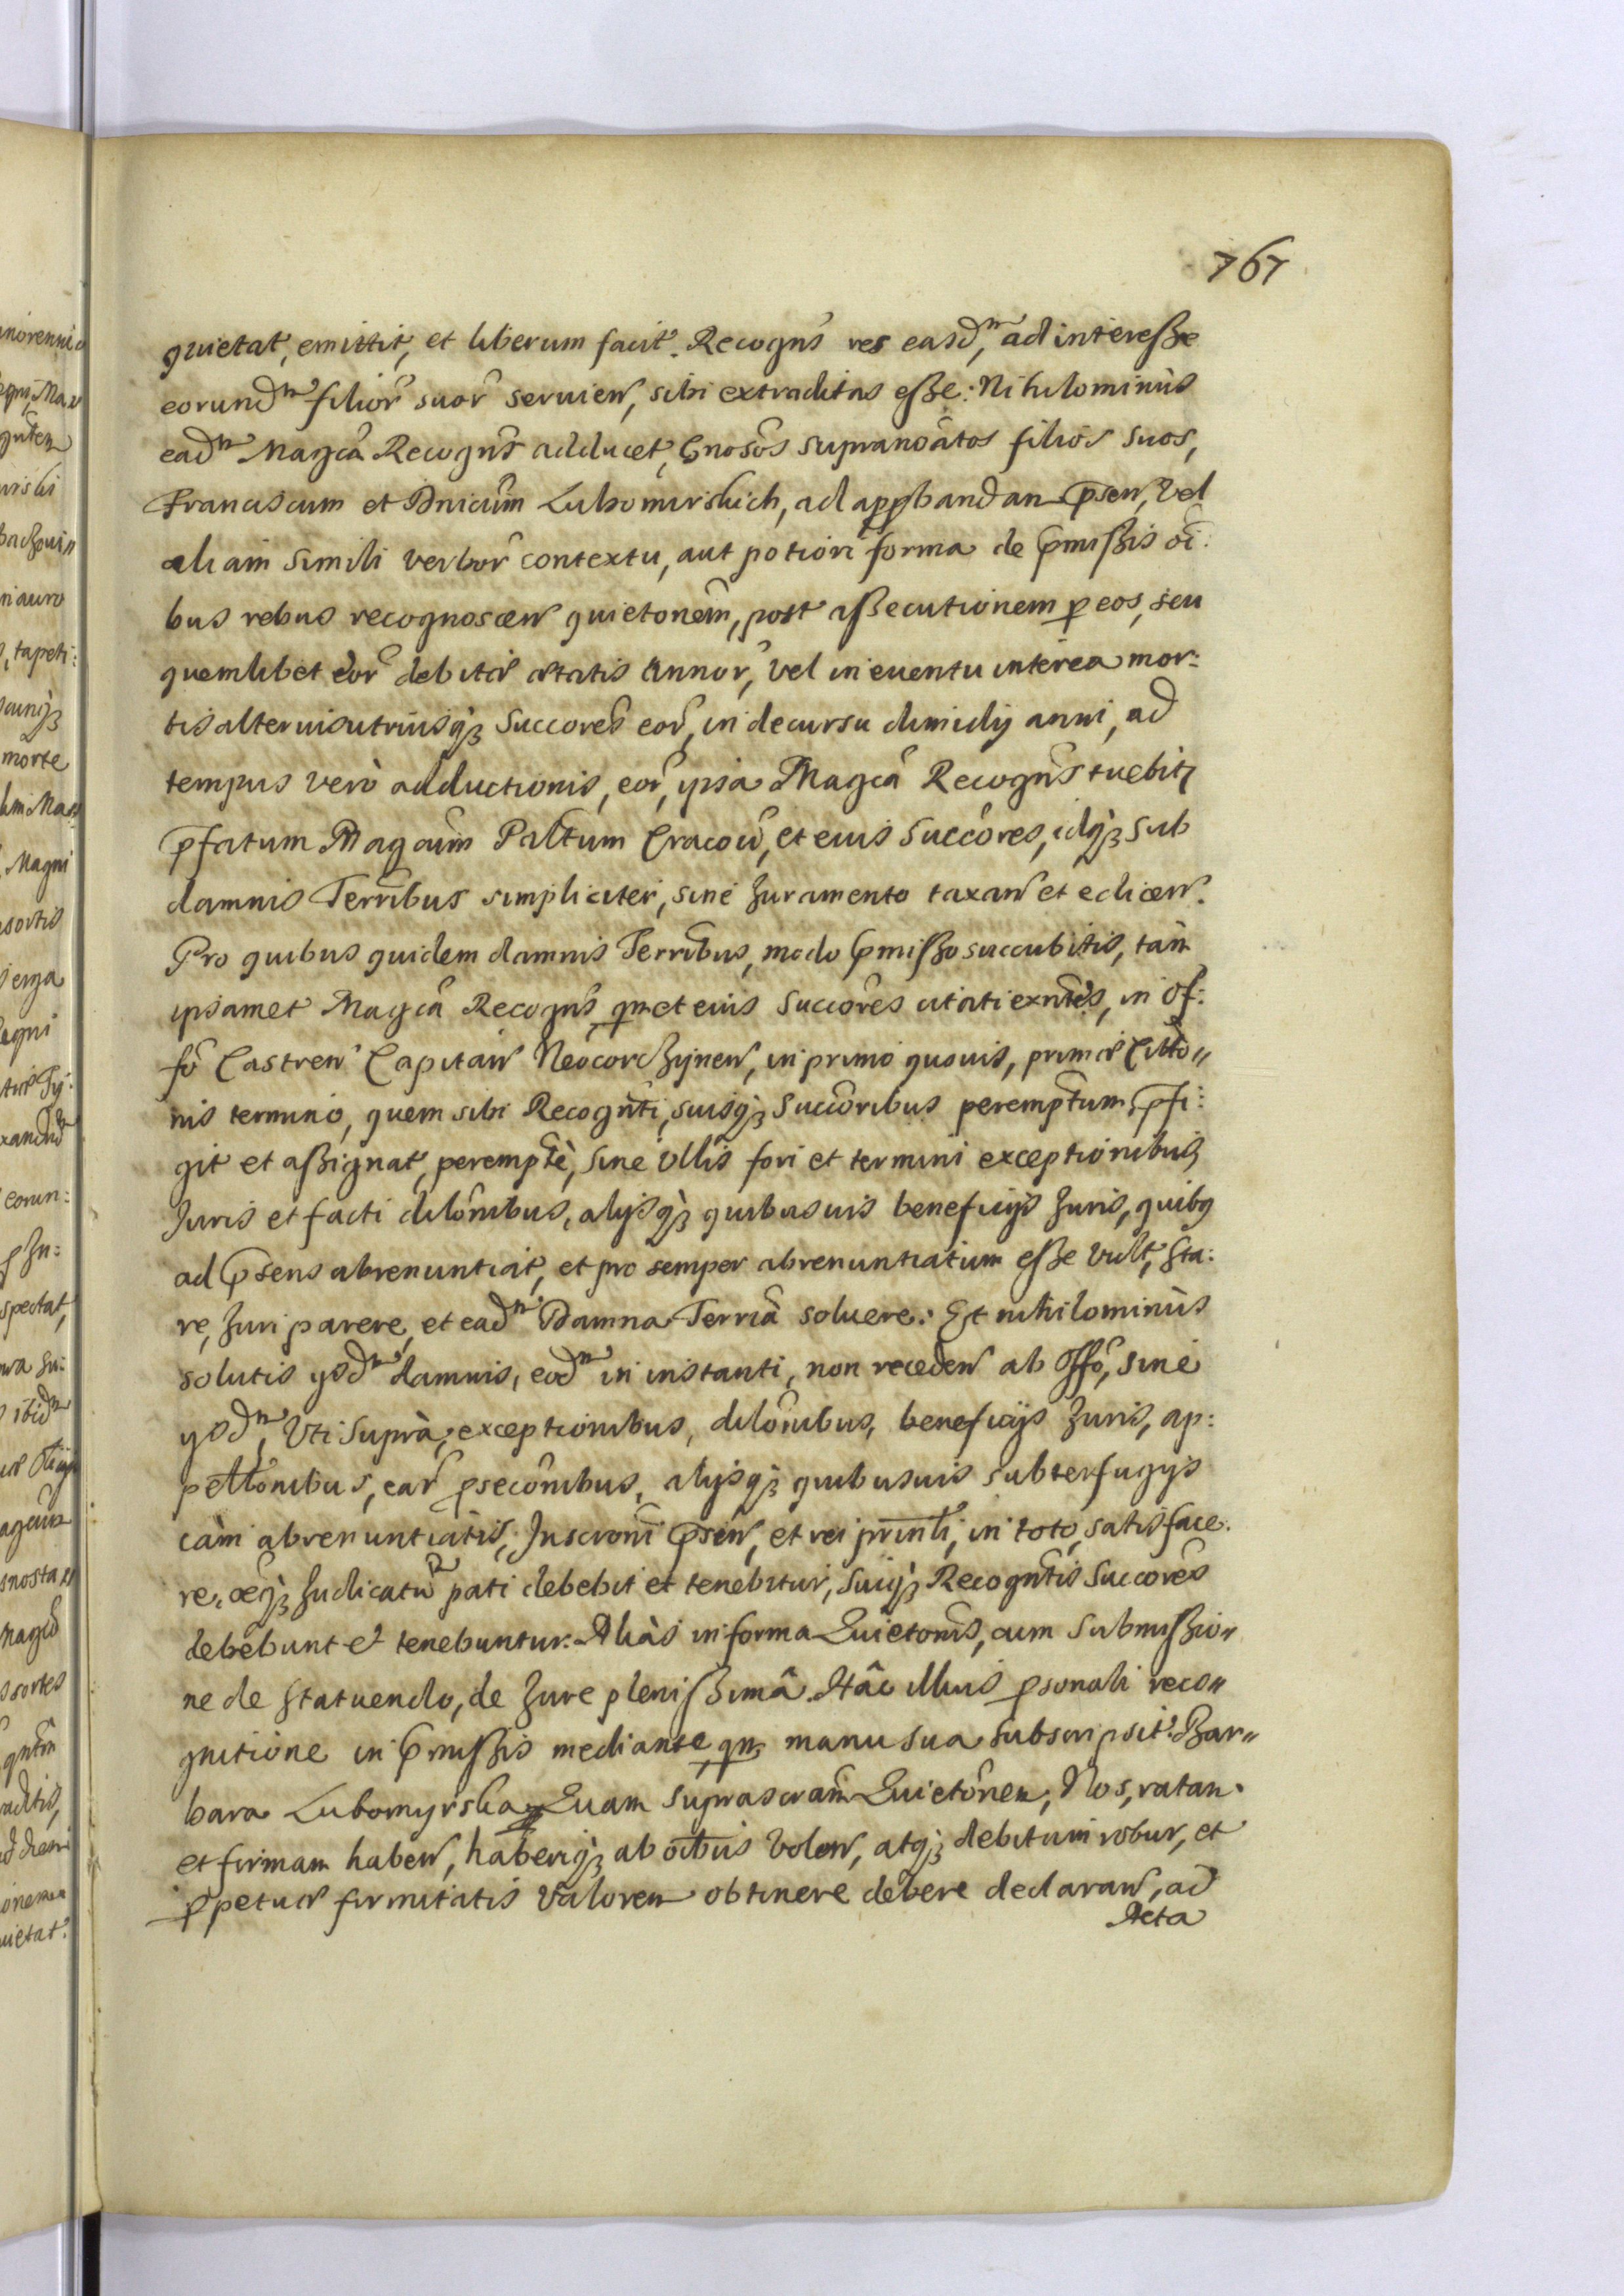 767
quietat, emittit, et liberum facit. Recogns res easd̃m, ad interesse
eorund̃m filior̃ suor̃ servien̄, sibi extraditas esse. Nihilominùs
ead̃m Magcã Recogns adducet, Gnosos supranoãtos filios suos,
Franciscum et Dnicum Lubomirskich, ad approbandan p̄sen̄, vel
aliam simili verbor̃ contextu, aut potiori forma de p̄missis oi̅:
bus rebus recognoscen̄ quietonem̃, post assecutionem p̱ eos, seu
quemlibet eor̃ debitæ ætatis annor̃, vel in eventu interea mor:
tis alteriusutriusq; Succores eor̃, in decursu dimidij anni, ad
tempus verò adductionis, eor̃, ipsa Magcã Recogns tuebit
p̄fatum Magcum Palt̃um Cracou̅, et eius Succores, idq; sub
damnis Terrñbus simpliciter, sine Juramento taxan̄ et edicen̄.
Pro quibus quidem damnis Terrñbus, modo p̄misso succubitis, tam̃
ipsamet Magcã Recogns qm̄ et eius Succores citati exñtes, in of:
fo̅ Castren̄ Capitan̄ Neocorchijnen̄, in primo quovis, primæ Citto̅"
nis termino, quem sibi Recognti, suisq; Succoribus perempt̃um, p̄fi:
git et assignat, perempt̃e, sine ullis fori et termini exceptionibus
Juris et facti dilõnibus, alijsq; quibusuis beneficijs Juris, quibq
ad p̄sens abrenuntiat, et pro semper abrenuntiatum esse vult, sta:
re, Juri parere, et ead̃m Damna Terrñā soluere. Et nihilominùs
solutis ijsd̃m damnis, eod̃m in instanti, non receden̄ ab Offo̅, sine
ijsd̃m, Uti Suprà, exceptionibus, dilõnibus, beneficijs Juris, ap:
pellõnibus, ear̃ p̱secõnibus, alijsq; quibusuis subterfugijs
cam̃ abrenuntiatis, Inscroni̅ p̄sen̄, et rei prinli̅, in toto, satisface:
re, eq; Judicatu̅ pati debebit et tenebitur, suiq; Recogntis Succores
debebunt et tenebuntur. Aliàs in forma Quietonis, cum submissio"
ne de statuendo, de Jure plenissimâ. Hâc illius p̱sonali reco"
gnitione in p̄missis mediante, qm̄ manu sua subscripsit. Bar"
bara Lubomyrska. Quam suprascram̃ Quietonem̃, Nos, ratan.
et firmam haben̄, haberiq; ab oi̅bus volen̄, atq; debitum robur, et
p̱petuæ firmitatis valorem obtinere debere declaran̄, ad
Acta